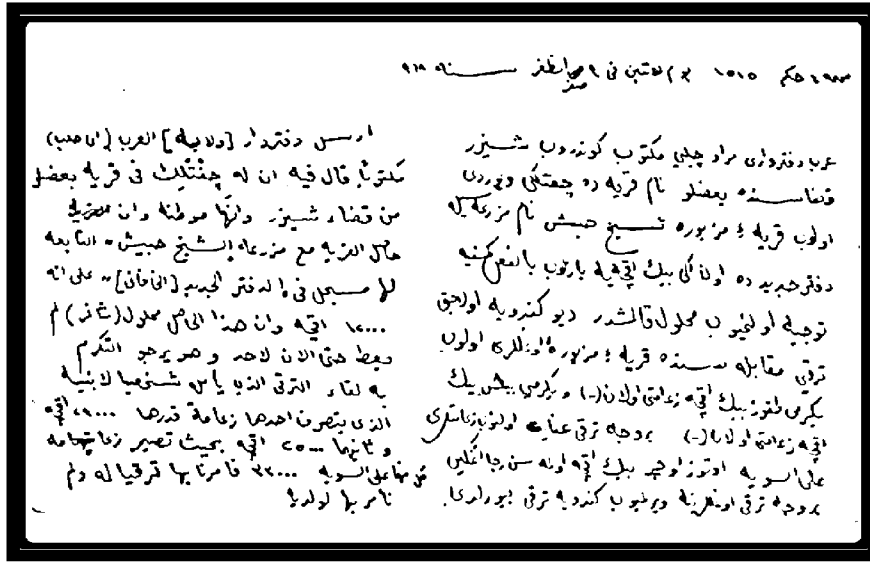 حكم ١٥١٥ يوم الاثنين فى ٩ صفر المظفر سنه ٩٦٩
عرب دفتردارى مراد چلبي مكتوب كوندروب شيزر
قضاسنده بعضلو نام قريه ده چفتلكى و يوردى
اولوب قريهٔ مزبوره شيخ حبش نام مزرعه ايله
دفتر جديد ده اون ايكى بيك اقچه يه يازلوب بالفعل كمسنيه
توجيه اولنميوب محلول قالمشدر ديو كندويه اولاجق
ترقى مقابله سنده قريهٔ مزبوره اوغللرى اولوب
يكرمى طقوز بيك اقچه زعامتى اولان (-) و يكرمى بش بيك
اقچه زعامتى اولان (-) بر وجه ترقى عنايت اولنوب زعامتلرى
على السويه اوتوز اوچر بيك اقچه اولنه سن رجا اتمكين
بر وجه ترقى اوغللرينه ويرلميوب كندويه ترقى بيورلدى.
ارسل دفتردار [ولاية] العرب (اى حلب)
مكتوبًا قال فيه ان له چفتلك فى قرية بعضلو
من قضاء شيزر وانها موطنه وان
حاصل القريه مع مزرعة الشيخ حبيش التابعه
لها مسجل فى الدفتر الجديد [الخاقانى] على انه
١٢٠٠٠ اقچه وان هذا الحاصل محلول (شاغر) لم
يعط حتى الان لاحد وهو يرجو التكرم
به لقاء الترقى الذى يأمل شخصيا لابنيه
الذى يتصرف احدهما زعامة قدرها ٢٩٠٠٠ اقچه
وثانيهما ٢٥٠٠٠ اقچه بحيث تصير زعامتهما
كل منهما على السويه ٣٣٠٠٠ فامرنا بها ترقيا له ولم
نأمر بها لولديه